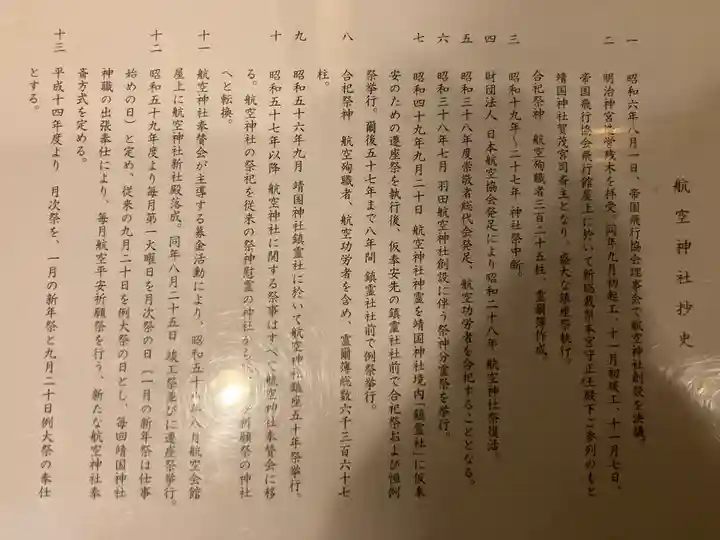 航空神社抄史
一 昭和六年八月一日、帝国飛行協会理事会で航空神社創設を決議。
二 明治神宮造営残木を拝受、同年九月初起工、十一月初竣工、十一月七日、
帝国飛行協会飛行館屋上に於いて新総裁梨本宮守正王殿下ご参列のもと
靖国神社賀茂宮司斎主となり、盛大な鎮座祭執行。
合祀祭神 航空殉職者三百二十五柱、霊爾簿作成。
三 昭和十九年~二十七年 神社祭中断。
四 財団法人 日本航空協会発足により昭和二十八年 航空神社祭復活。
五 昭和三十八年度崇敬者総代会発足、航空功労者を合祀することとなる。
六 昭和三十八年七月 羽田航空神社創設に伴う祭神分霊祭を挙行。
七 昭和四十九年九月二十日 航空神社神霊を靖国神社境内「鎮霊社」に仮奉
安のための遷座祭を執行後、仮奉安先の鎮霊社社前で合祀祭および恒例
祭挙行。爾後五十七年まで八年間 鎮霊社社前で例祭挙行。
八 合祀祭神 航空殉職者、航空功労者を含め、霊爾簿総数六千三百六十七
柱。
九 昭和五十六年九月 靖国神社鎮霊社に於いて航空神社鎮座五十年祭挙行。
十 昭和五十七年以降 航空神社に関する祭事はすべて航空神社奉賛会に移
る。航空神社の祭祀を従来の祭神慰霊の神社から 祈願祭の神社
へと転換。
十一 航空神社奉賛会が主導する募金活動により、昭和五十 年八月航空会館
屋上に航空神社新社殿落成。同年八月二十五日 竣工祭並びに遷座祭挙行。
十二 昭和五十九年度より毎月第一火曜日を月次祭の日(一月の新年祭は仕事
始めの日)と定め、従来の九月二十日を例大祭の日とし、毎回靖国神社
神職の出張奉仕により、毎月航空平安祈願祭を行う、新たな航空神社奉
斎方式を定める。
十三 平成十四年度より 月次祭を、一月の新年祭と九月二十日例大祭の奉仕
とする。